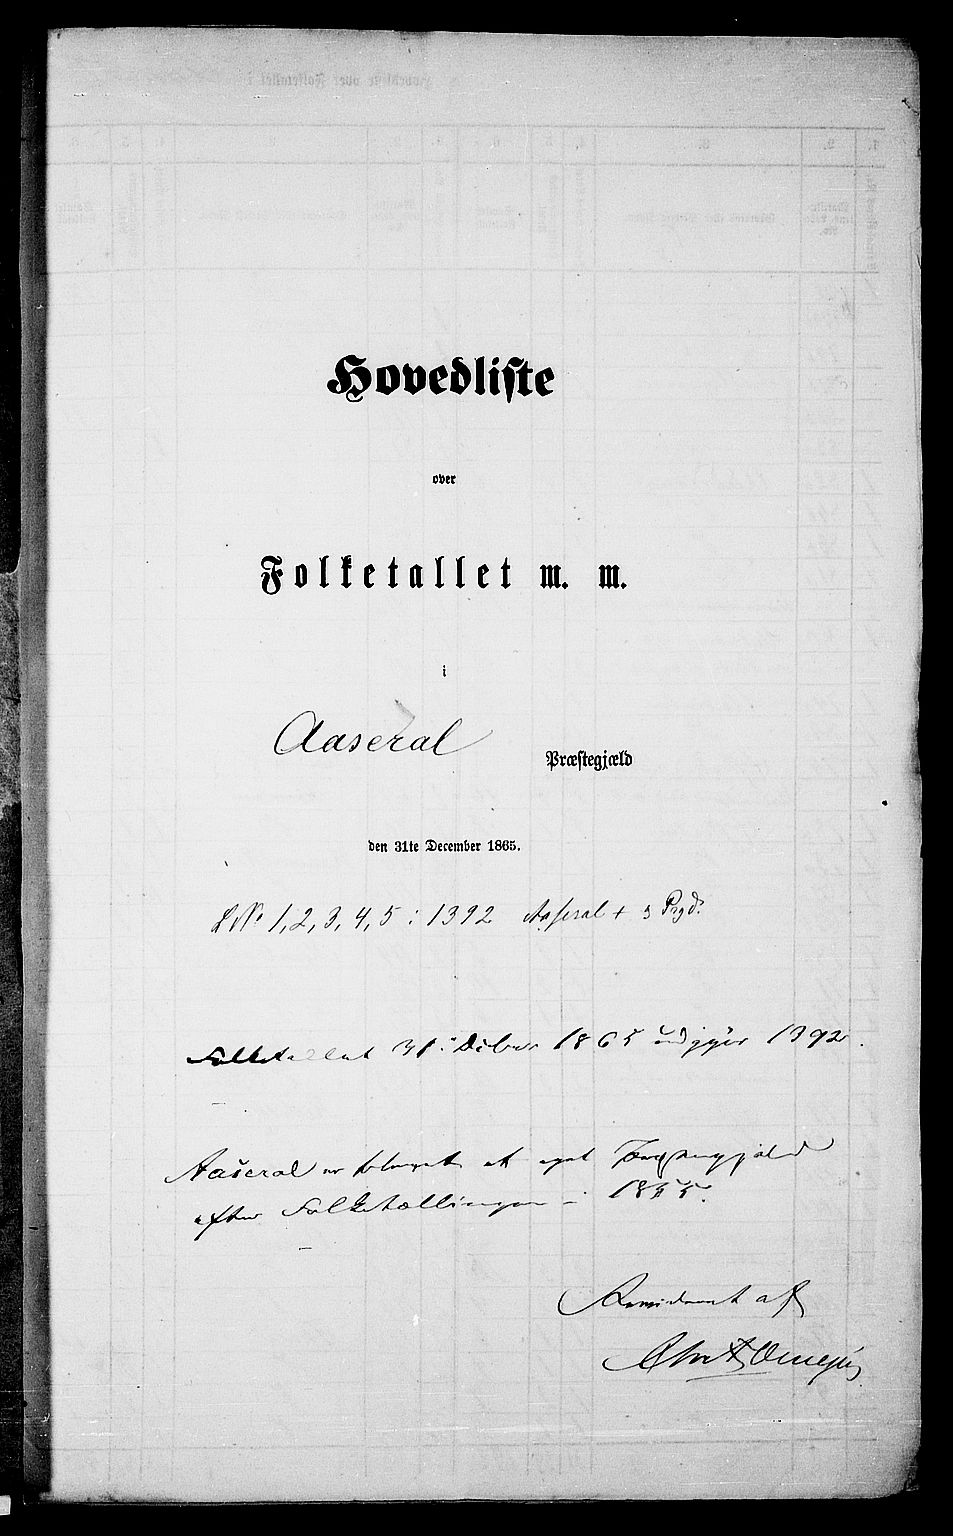 Hovedliste
over
Folketallet m. m.
i
Aaseral
Præstegjæld
den 31te December 1865.
L No 1, 2, 3, 4, 5 : 1392 Aaseral + s Prgd.
Folketallet 31: Debr 1865 udgjør 1392.
Aaseral er blevet et eget
efter Folketællingen i 1855.
Revideret af